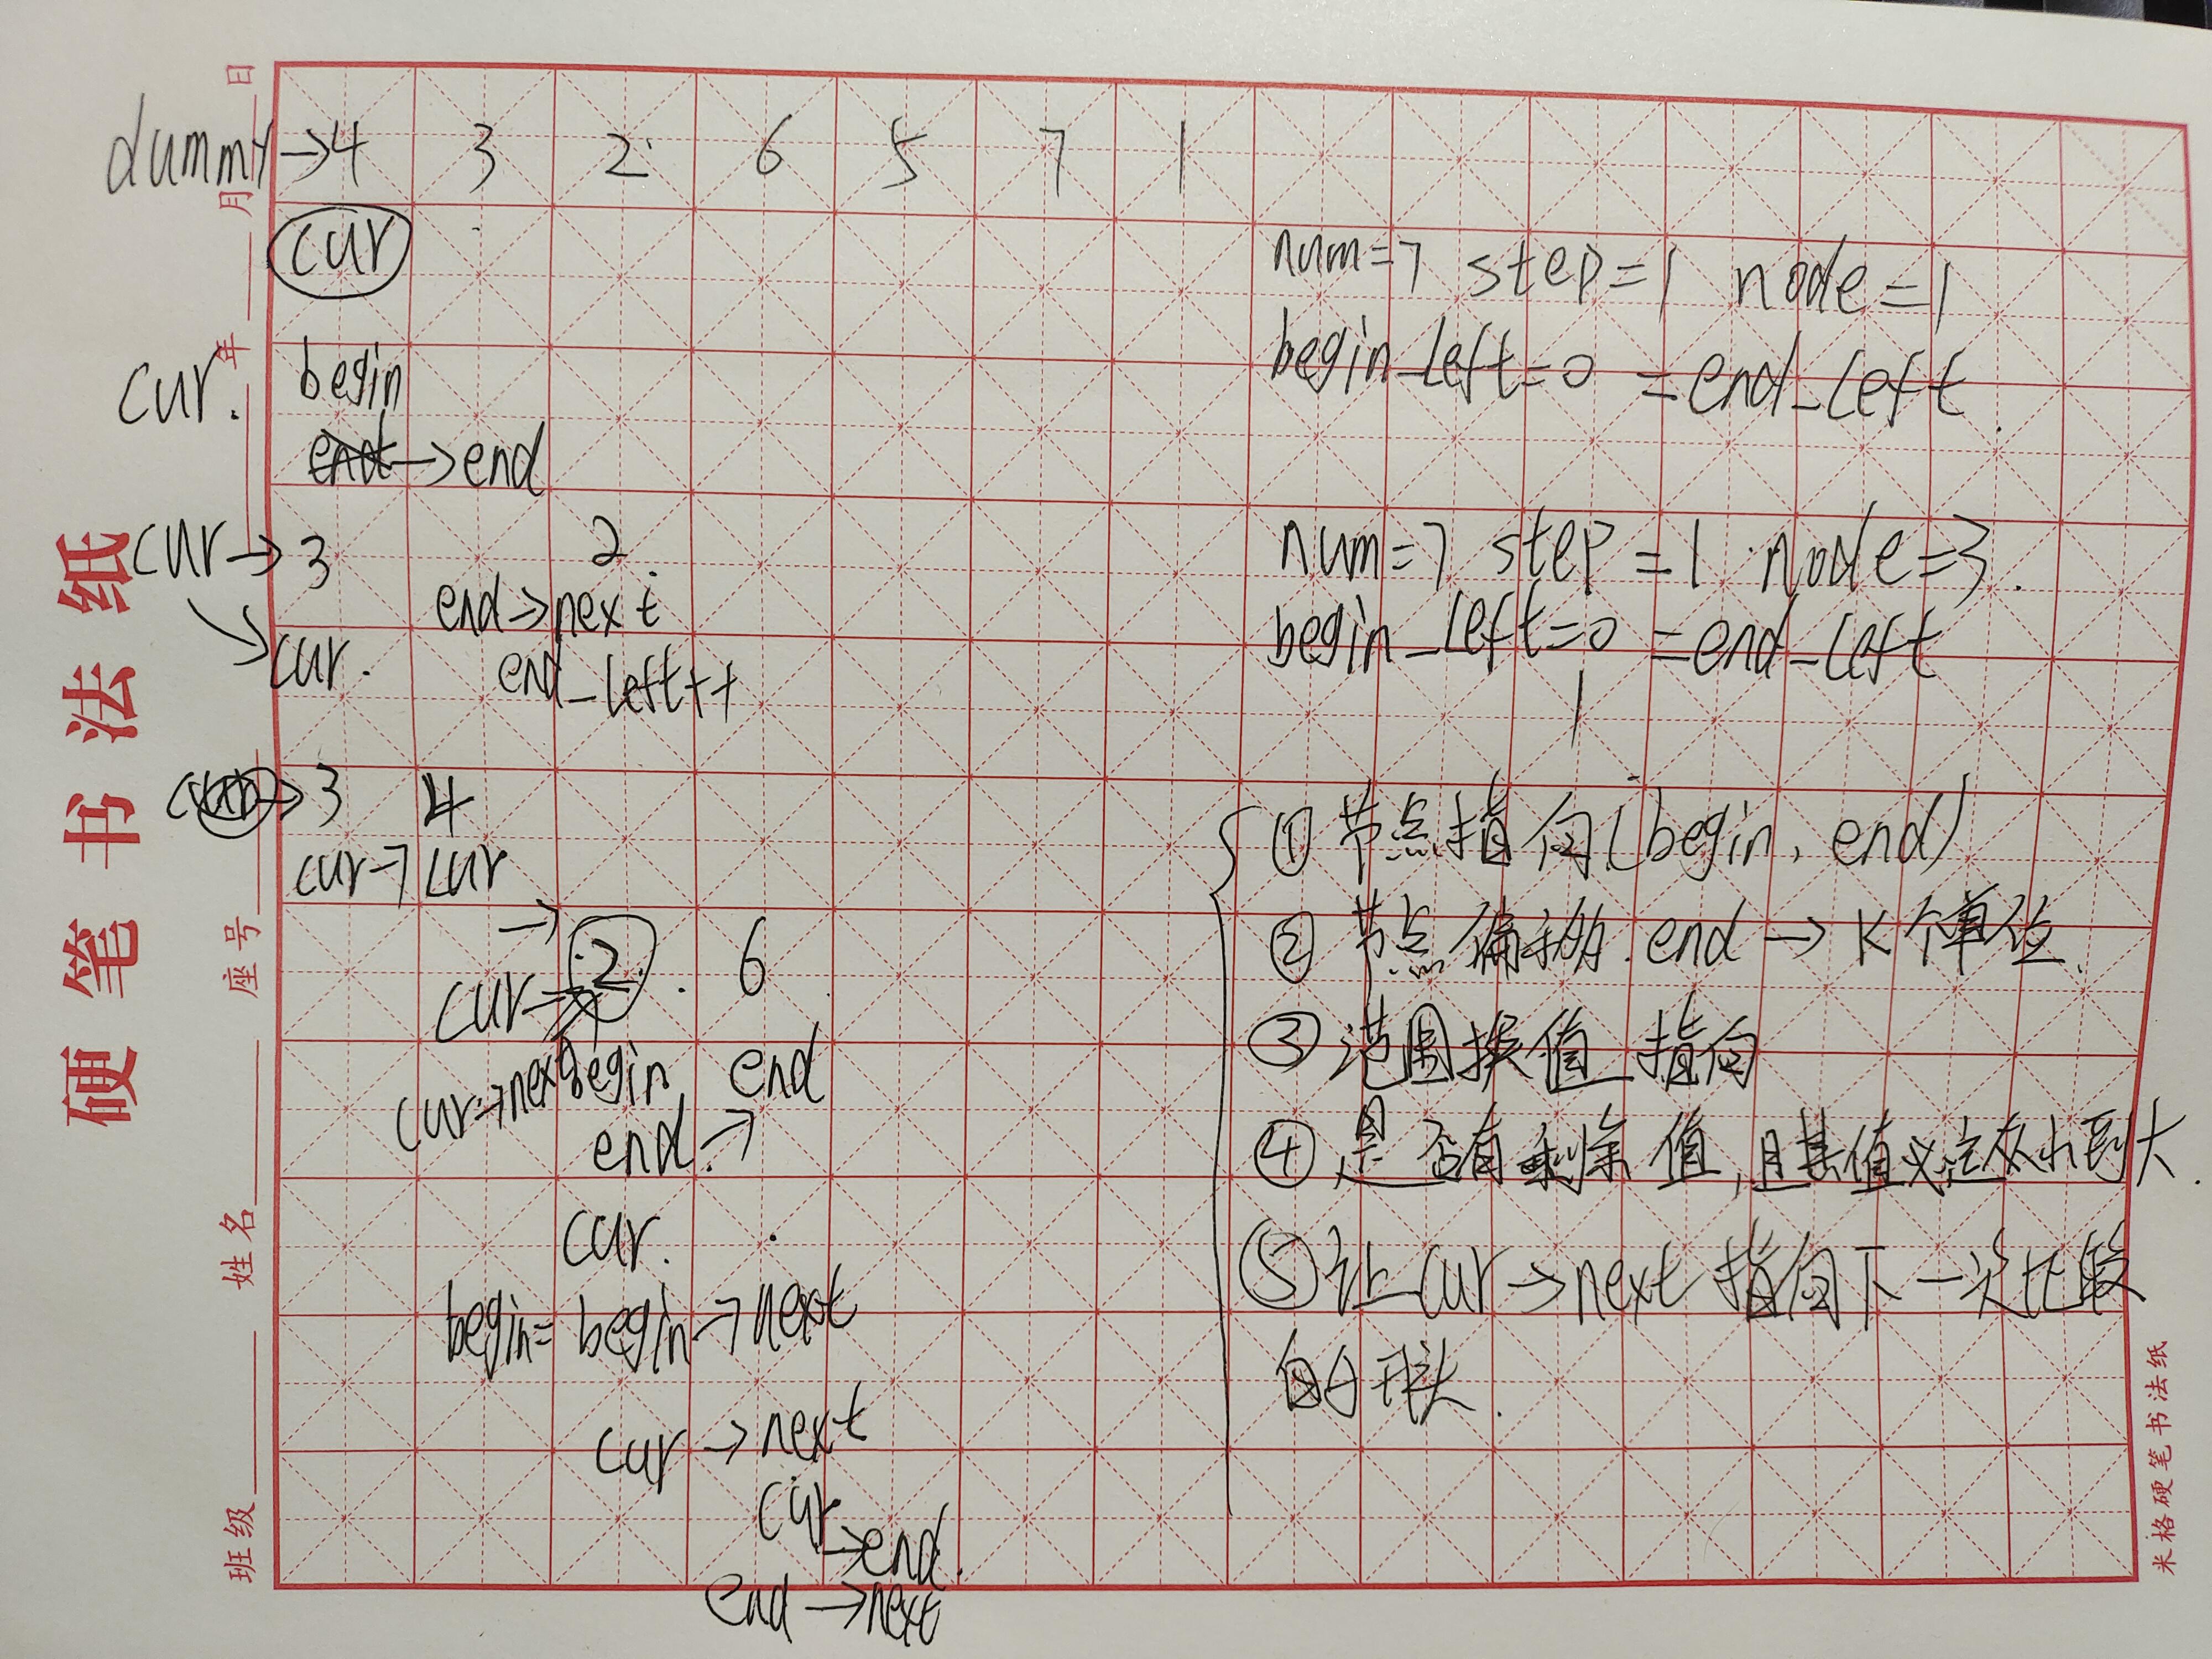 硬笔书法纸
班级 姓名 座号 年 月 日
dummy→4 3 2 6 5 7 1
cur
cur. begin
end→end
cur→3 2
end→next
cur. end_left++
cur→3 4
cur→cur
→
cur→2. 6
cur→next begin end
end.→
cur.
begin=begin→next
cur→next
cur→end.
end→next
num=7 step=1 node=1
begin_left=0=end_left.
num=7 step=1 node=3.
begin_left=0=end_left
1
①节点指向(begin、end)
②节点偏移.end→K个单位.
③范围换值 指向
④是否有剩余值,且其值必定从小到大.
⑤让cur→next指向下一次比较
的开头.
米格硬笔书法纸